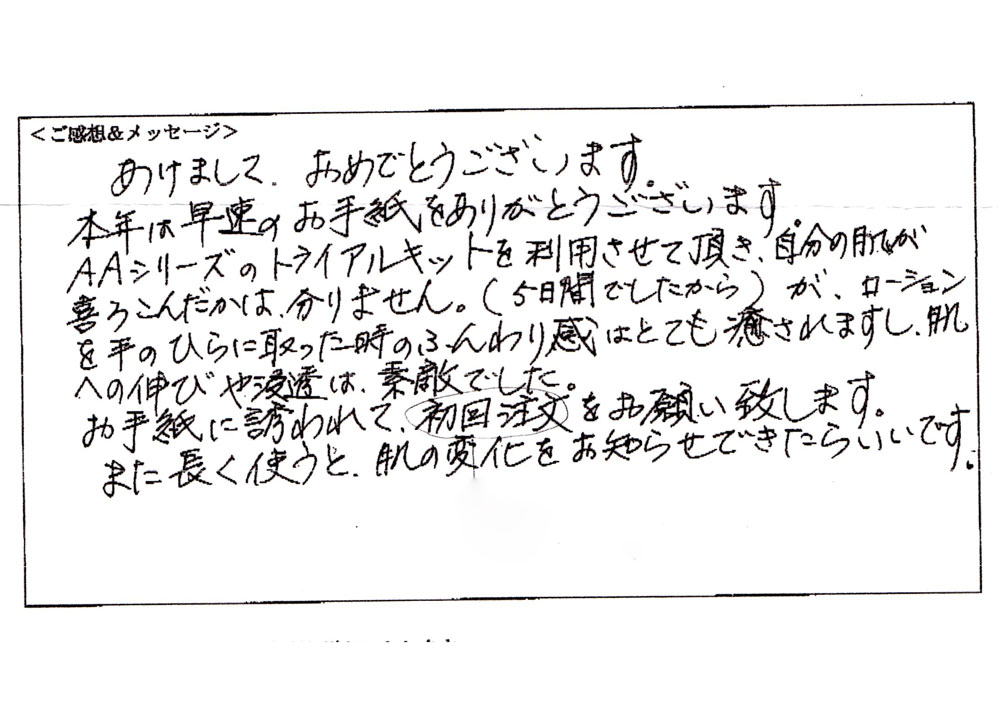 ＜ご感想&メッセージ＞
あけまして、おめでとうございます。
本年は早速のお手紙をありがとうございます。
AAシリーズのトライアルキットを利用させて頂き、自分の肌が
喜ろこんだかは、分りません。(5日間でしたから)が、ローション
を手のひらに取った時のふんわり感はとても癒されますし、肌
への伸びや浸透は、素敵でした。
お手紙に誘われて、初回注文をお願い致します。
また長く使うと、肌の変化をお知らせできたらいいです。